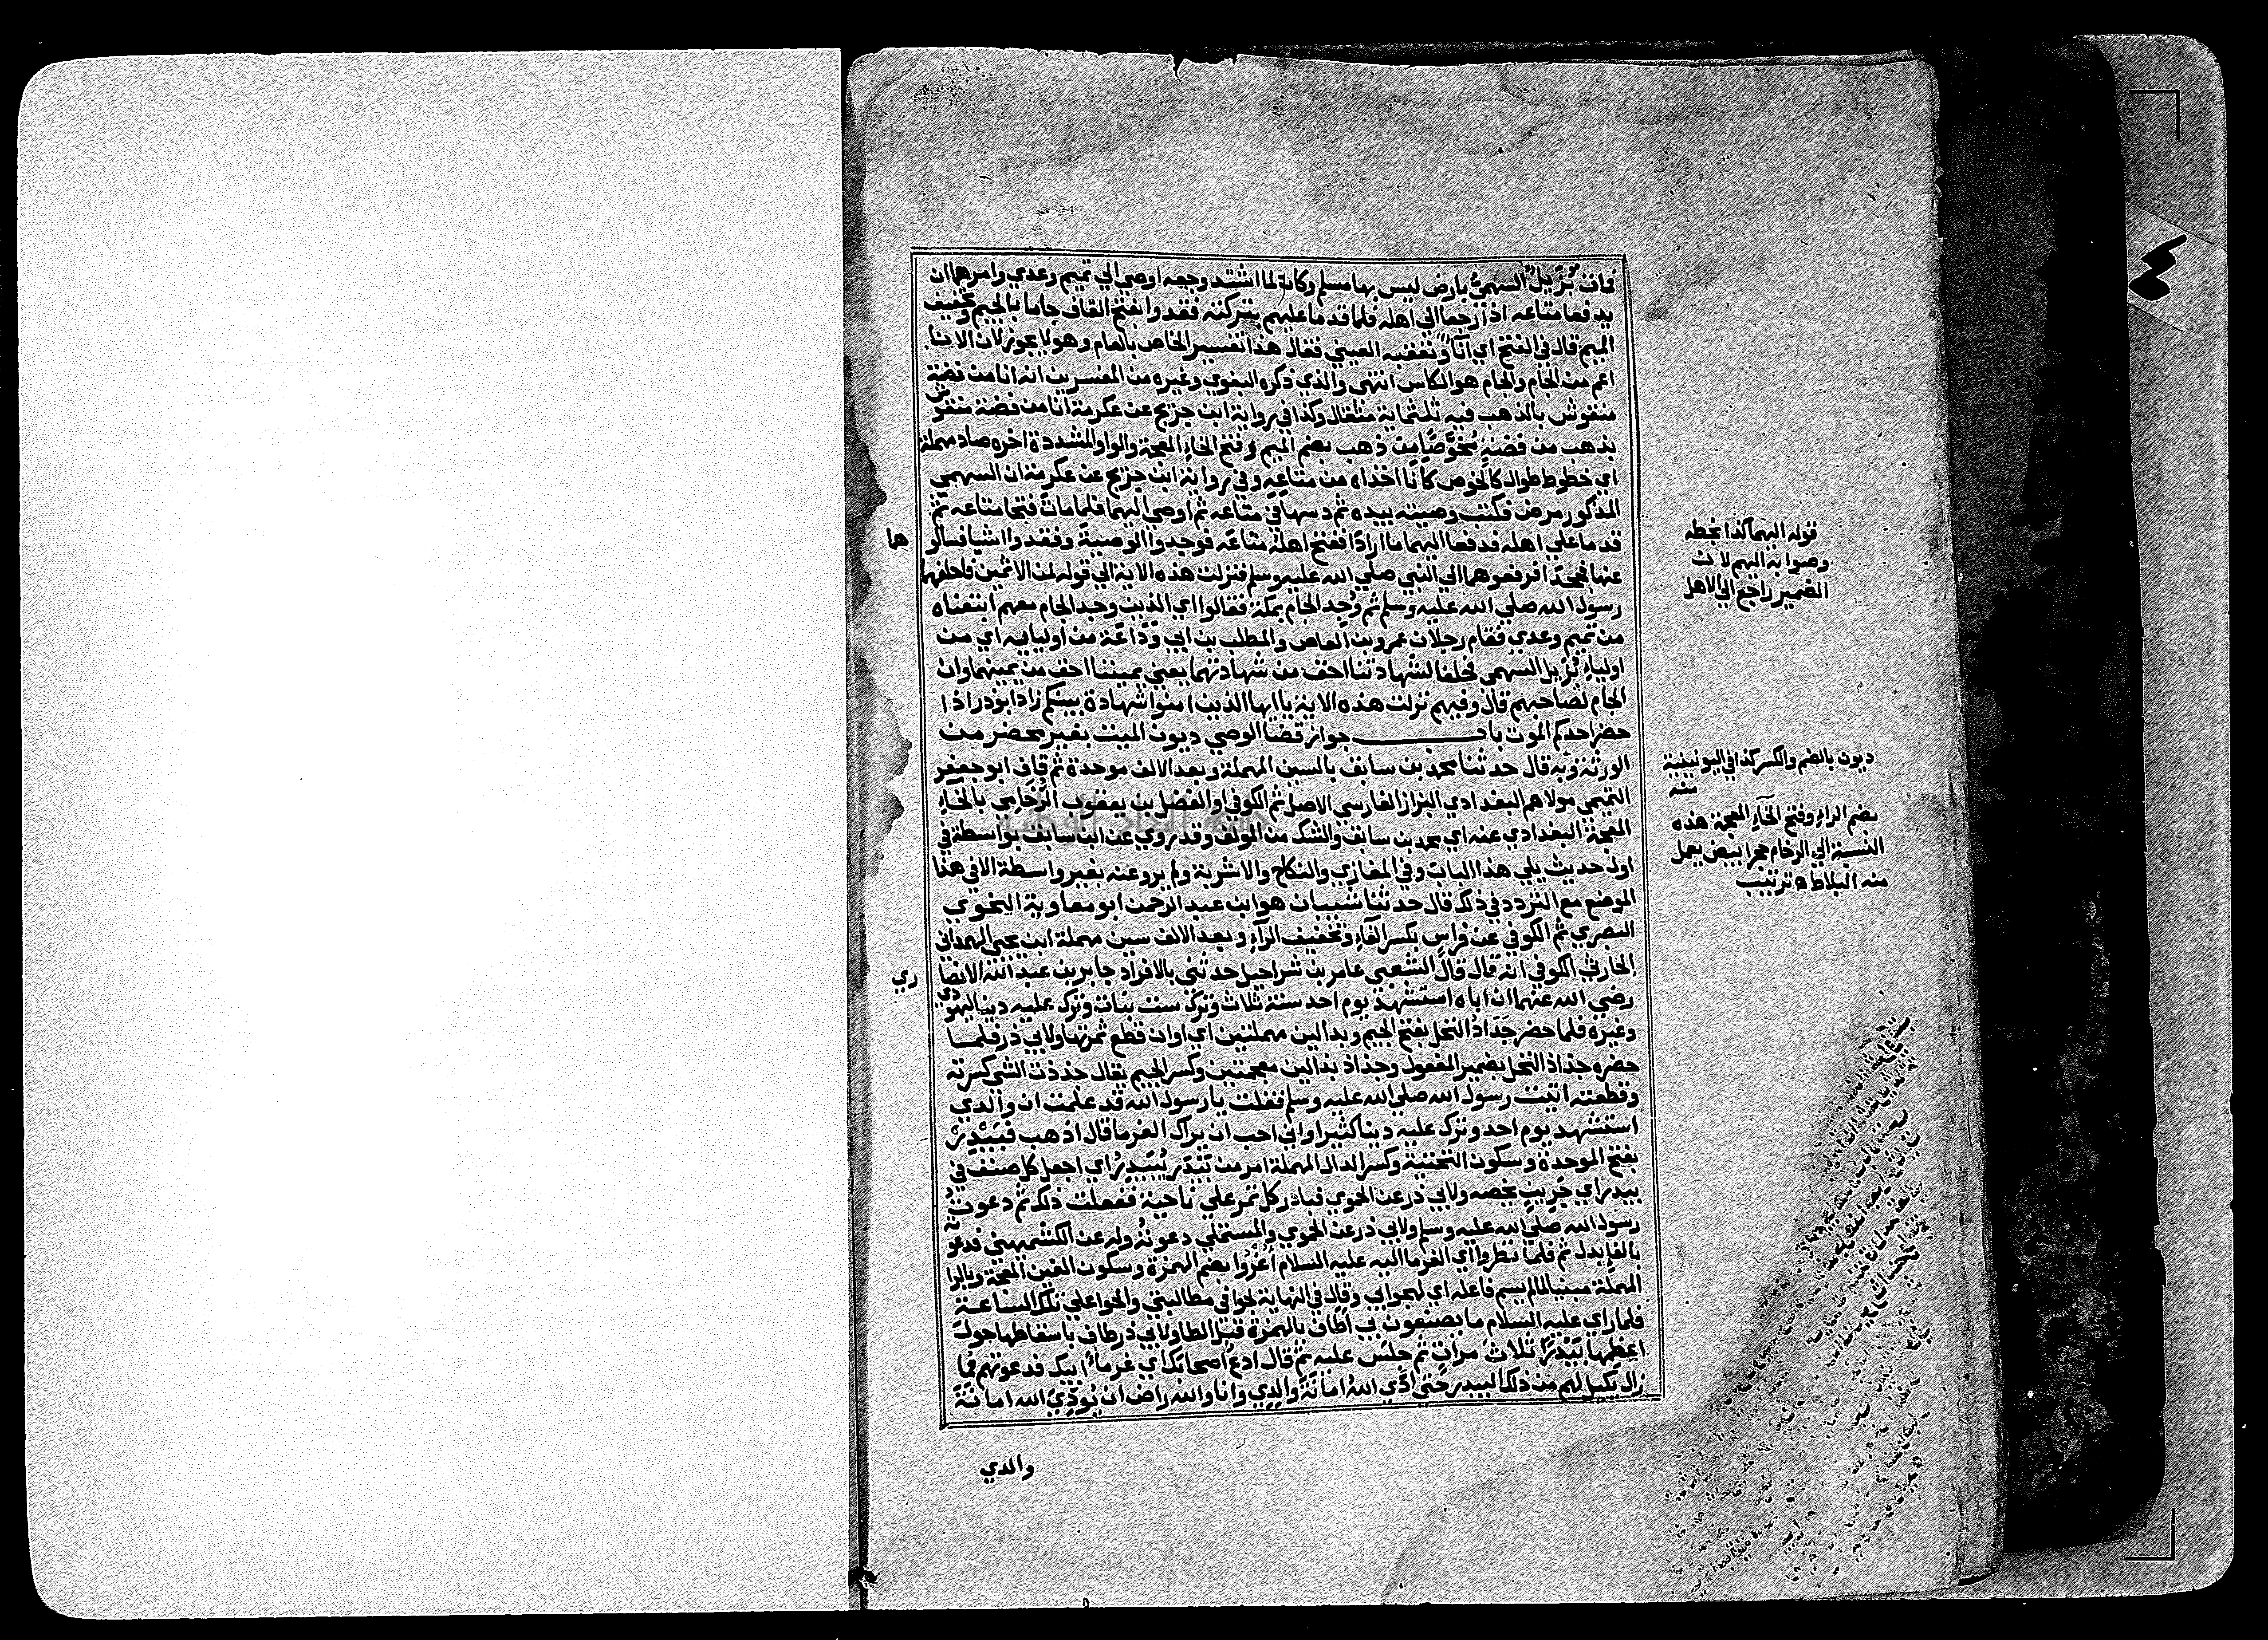 فمات بُزَيلٌ السهميُّ بارض ليس بها مسلم وكان لما اشتد وجعه اوصي الي تميم وعدي وامرهما ان
يدفعا متاعه اذا رجعا الي اهله فلما قدما عليهم بتركته فقدوا بفتح القاف جاما بالجيم وتخفيف
الميم قال في الفتح اي اناً وتعقبه العيني فقال هذا تفسير الخاص بالعام وهو لا يجوز لان الانا
اعم من الجام والجام هو الكاس انتهي والذي ذكره البغوي وغيره من المفسرين انه انا من فضة
منقوش بالذهب فيه ثلثماية مثقال وكذا في رواية ابن جريج عن عكرمة انا من فضة منقوش
بذهب من فضةٍ مُخَوَّصًا من ذهب بضم الميم وفتح الخاءِ المعجمة والواو المشددة اخره صاد مهملة
اي خطوط طوال كالخوص كانا اخذاه من متاعه وفي رواية ابن جريج عن عكرمة ان السهمي
المذكور مرض فكتب وصيته بيده ثم دسها في متاعه ثم اوصي اليهما فلما مات فتحا متاعه ثم
قدما علي اهله فدفعا اليهما ما ارادا ففتح اهله متاعه فوجدوا الوصية وفقدوا اشيا فسالوهما
عنها فجحدا فرفعوهما الي النبي صلي الله عليه وسلم فنزلت هذه الاية الي قوله لمن الاثمين فاحلفهما
رسول الله صلي الله عليه وسلم ثم وُجِد الجام بمكة فقالوا اي الذين وجد الجام معهم ابتعناه
من تميم وعدي فقام رجلان عمرو بن العاص والمطلب بن ابي وَدَاعَة من اوليايه اي من
اولياءِ بُزَيل السهمي فحلفا لشهادتنا احق من شهادتهما يعني يميننا احق من يمينهما وان
الجام لصاحبهم قال وفيهم نزلت هذه الاية يا ايها الذين امنوا شهادة بينكم زاد ابو ذر اذا
حضر احدكم الموت باب جواز قضا الوصي ديون الميت بغير محضر من
الورثة وبه قال حدثنا محمد بن سابق بالسين المهملة وبعد الالف موحدة ثم قاف ابو جعفر
التميمي مولاهم البغدادي البزاز الفارسي الاصل ثم الكوفي او الفضل بن يعقوب الرُّخَامي بالخاءِ
المعجمة البغدادي عنه اي محمد بن سابق والشك من المولف وقد روي عن ابن سابق بواسطة في
اول حديث يلي هذا الباب وفي المغازي والنكاح والاشربة ولم يرو عنه بغير واسطة الا في هذا
الموضع مع التردد في ذلك قال حدثنا شيبان هو ابن عبد الرحمن ابو معاوية النحوي
البصري ثم الكوفي عن فراسٍ بكسر الفاءِ وتخفيف الراءِ وبعد الالف سين مهملة ابن يحيي الهمداني
الخارفي الكوفي انه قال قال الشعبي عامر بن شراحيل حدثني بالافراد جابر بن عبد الله الانصاري
رضي الله عنهما ان اباه استشهد يوم احد سنة ثلاث وترك ست بنات وترك عليه دينا ليهودي
وغيره فلما حضر جَدَادُ النخل بفتح الجيم وبدالين مهملتين اي اوان قطع ثمرتها ولابي ذر فلما
حضره جذاذ النخل بضمير المفعول وجذاذ بذالين معجمتين وكسر الجيم يقال جذذت الشي كسرته
وقطعته اتيت رسول الله صلي الله عليه وسلم فقلت يا رسول الله قد علمت ان والدي
استشهد يوم احد وترك عليه دينا كثيرا واني احب ان يراك الغرما قال اذهب فَبَيْدِرْ
بفتح الموحدة وسكون التحتية وكسر الدال المهملة امر من بَيْدَر يُبَيْدِرُ اي اجعل كل صنف في
بيدر اي جَرِينٍ يخصه ولابي ذر عن الحموي فبادر كل تمر علي ناحية ففعلت ذلك ثم دعوت
رسول الله صلي الله عليه وسلم ولابي ذر عن الحموي والمستملي دعوتُهُ وله عن الكشميهني فدعوته
بالفاءِ بدل ثم فلما نظروا اي الغرما اليه عليه السلام اُغْرُوا بضم الهمزة وسكون الغين المعجمة وبالرا
المهملة مبنيا لما لم يسم فاعله اي لهجوا بي وقال في النهاية لجوا في مطالبتي والحوا علي تلك الساعة
فلما راي عليه السلام ما يصنعون بي اطاف بالهمزة قبل الطا ولابي ذر طاف باسقاطها حول
اعظمها بَيْدَرًا ثلاث مراتٍ ثم جلس عليه ثم قال ادعُ اصحابَك اي غرماءَ ابيك فدعوتهم فما
زال يكيل لهم من ذلك البيدر حتي ادَّي اللهُ امانَةَ والِدِي وانا والله راض ان يُودِّيَ الله امانَةَ
والدي
قوله اليهما كذا بخطه
وصوابه اليهم لان
الضمير راجع الي الاهل
ديون بالضم والكسر كذا في اليونينية
منه
بضم الراءِ وفتح الخآءِ المعجمة هذه
النسبة الي الرخام حجر ابيض يعمل
منه البلاط ه ترتيب